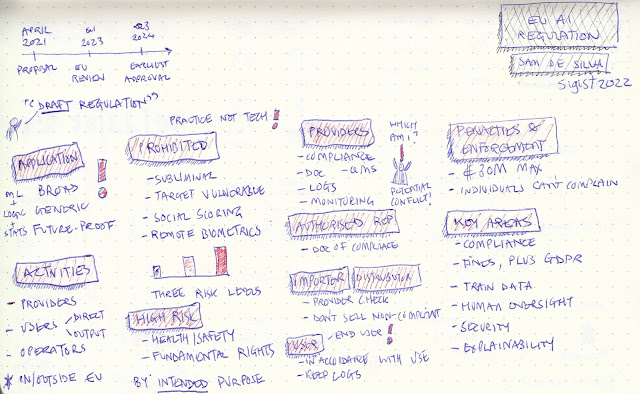 APRIL
2021
Q1
2023
Q3
2024
PROPOSAL
EU
REVIEW
EARLIEST
APPROVAL
"DRAFT REGULATION"
EU AI
REGULATION
SAM DE SILVA
Sigist 2022
APPLICATION
ML
+
LOGIC
+
STATS
BROAD
GENERIC
FUTURE-PROOF
ACTIVITIES
- PROVIDERS
- USERS DIRECT
OUTPUT
- OPERATORS
* IN/OUTSIDE EU
PRACTICE NOT TECH!
PROHIBITED
- SUBLIMINAL
- TARGET VULNERABLE
- SOCIAL SCORING
- REMOTE BIOMETRICS
THREE RISK LEVELS
HIGH RISK
- HEALTH/SAFETY
- FUNDAMENTAL RIGHTS
BY INTENDED PURPOSE
PROVIDERS
- COMPLIANCE
- DOC - QMS
- LOGS
- MONITORING
WHICH
AM I?
POTENTIAL
CONFLICT!
AUTHORISED REP
- DOC OF COMPLIACE
IMPORTER DISTRIBUTOR
- PROVIDER CHECK
- DON'T SELL NON-COMPLIANT
USER - END USER!
- IN ACCORDANCE WITH USE
- KEEP LOGS
PENALTIES &
ENFORCEMENT
- €30M MAX
- INDIVIDUALS CAN'T COMPLAIN
KEY AREAS
- COMPLIANCE
- FINES, PLUS GDPR
- TRAIN DATA
- HUMAN OVERSIGHT
- SECURITY
- EXPLAINABILITY